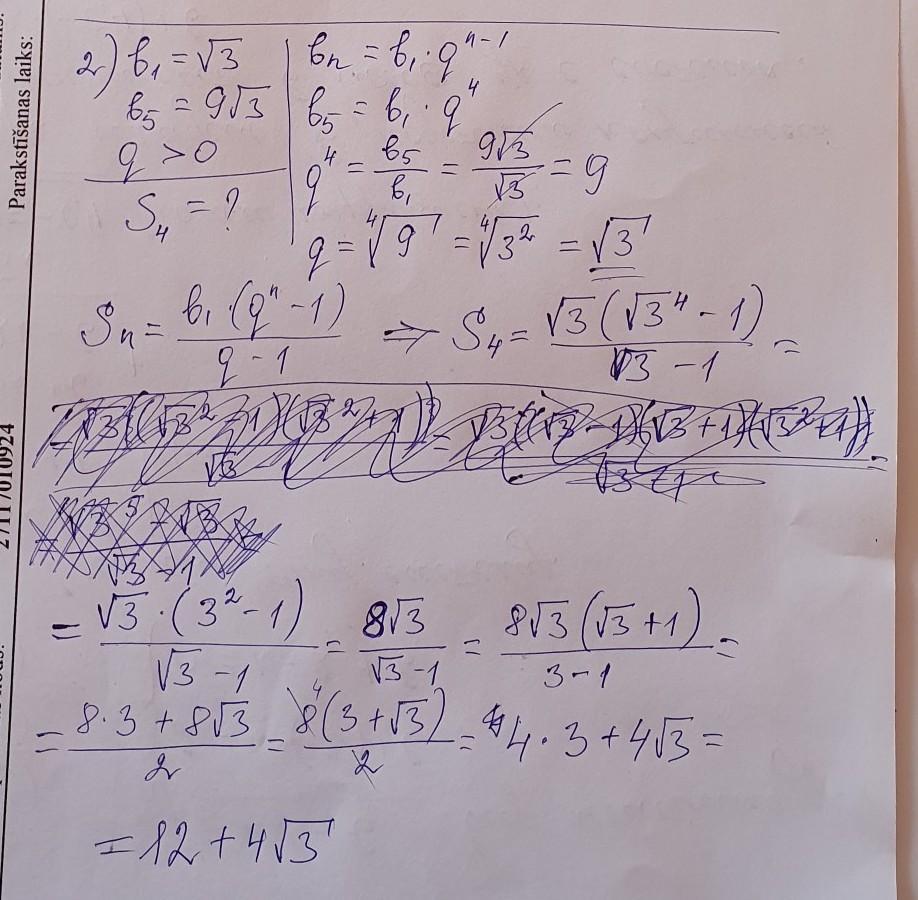 Parakstīšanas laiks:
27117010924
2) b₁ = √3
b₅ = 9√3
q > 0
S₄ = ?
bₙ = b₁ · qⁿ⁻¹
b₅ = b₁ · q⁴
q⁴ = b₅/b₁ = 9√3/√3 = 9
q = ⁴√9 = ⁴√3² = √3
Sₙ = b₁ · (qⁿ - 1)/(q - 1) ⇒ S₄ = √3(√3⁴ - 1)/(√3 - 1) =
= √3 · (3² - 1)/(√3 - 1) = 8√3/(√3 - 1) = 8√3(√3 + 1)/(3 - 1) =
= (8 · 3 + 8√3)/2 = 8(3 + √3)/2 = 4 · 3 + 4√3 =
= 12 + 4√3